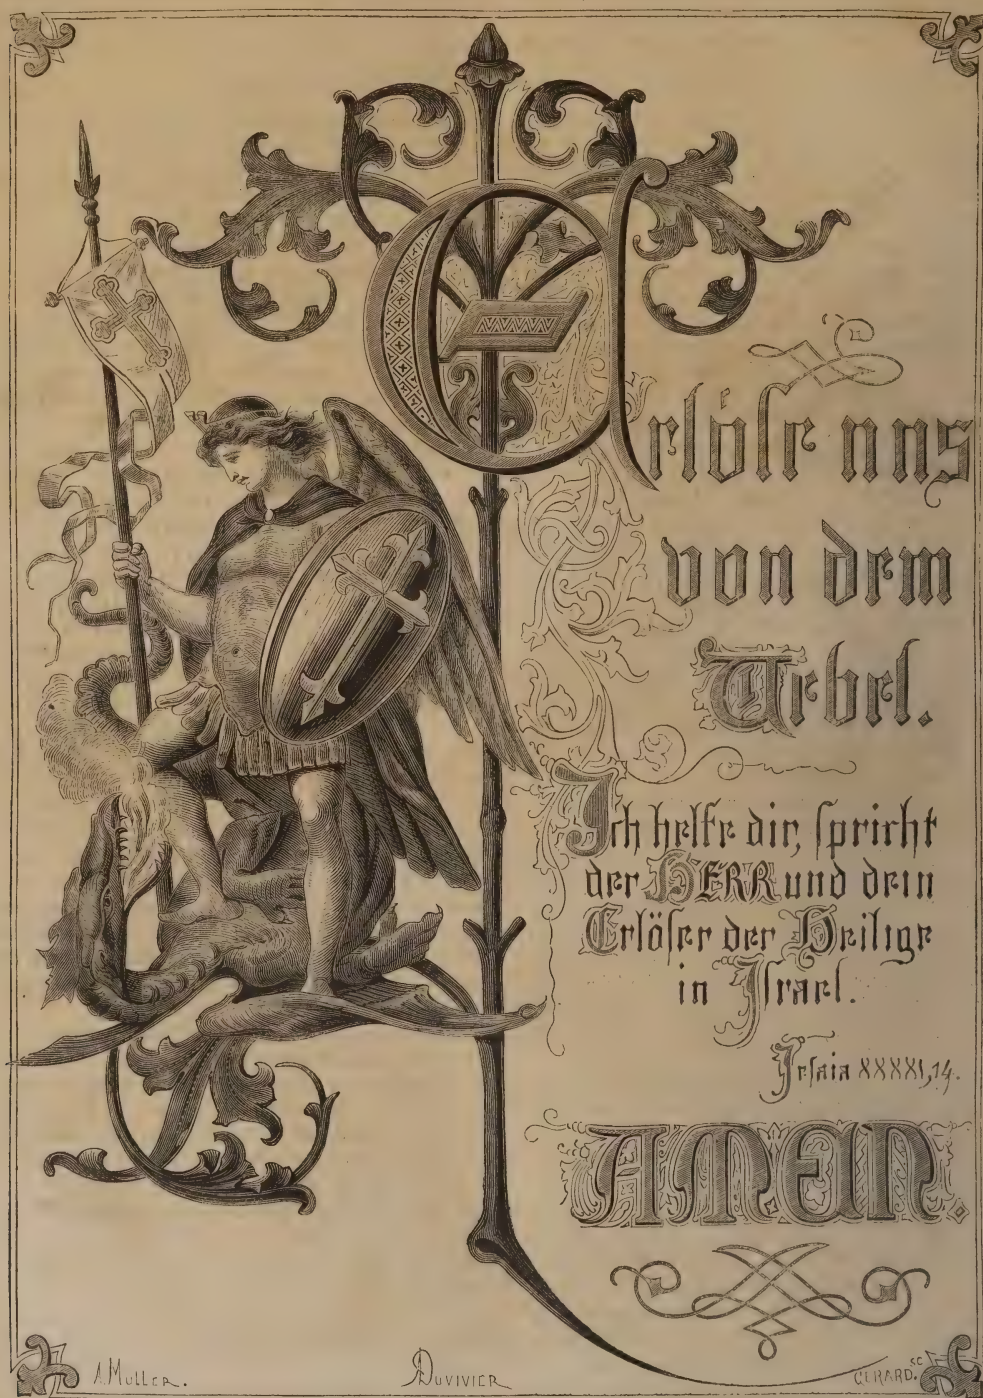 Erlöse uns
von dem
Uebel.
Ich helfe dir, spricht
der HERR und dein
Erlöser der Heilige
in Israel.
Jesaia XXXXI, 14.
AMEN.
A. MULLER.
A DUVIVIER
GERARD. SC